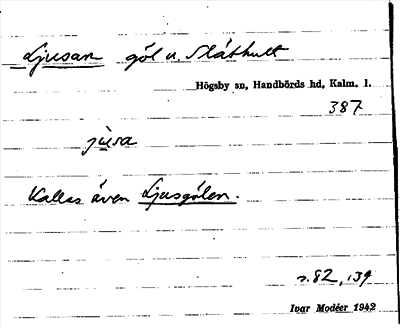 Ljusan göl u. Slåthult
Högsby sn, Handbörds hd, Kalm. l.
387
jusa
Kallas även Ljusgölen.
s. 82, 139
Ivar Modéer 1942